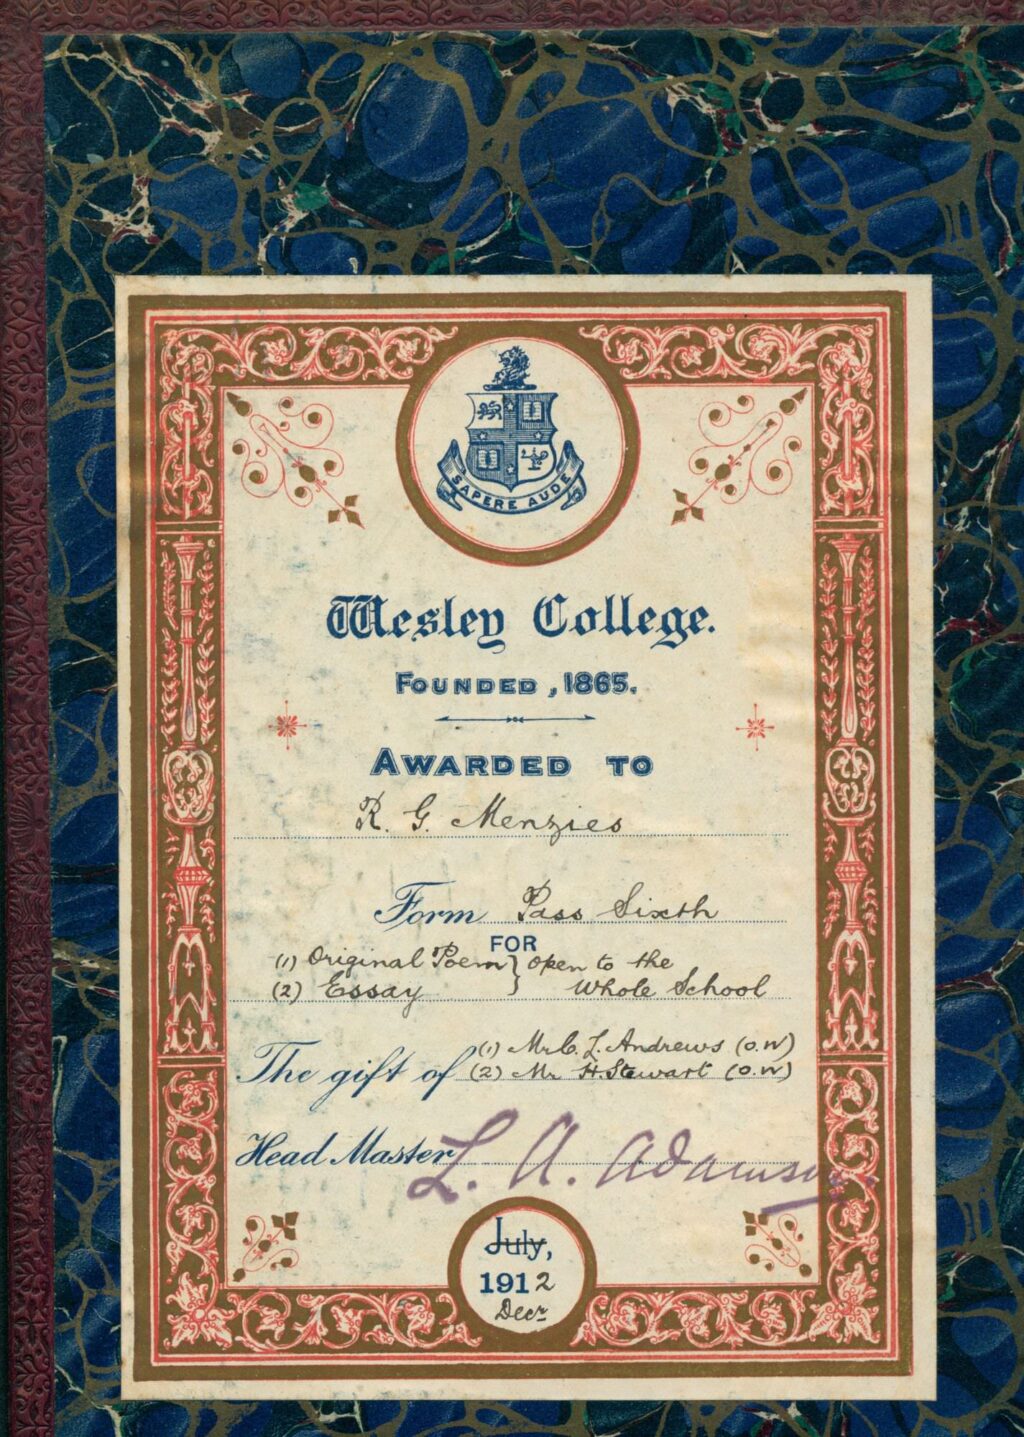 SAPERE AUDE
Wesley College.
FOUNDED, 1865.
AWARDED TO
R. G. Menzies
Form Pass Sixth
FOR
(1) Original Poem } Open to the
(2) Essay } Whole School
The gift of (1) Mr C. L. Andrews (O.W)
(2) Mr H. Stewart (O.W)
Head Master L. A. Adamson
July,
1912
Decr